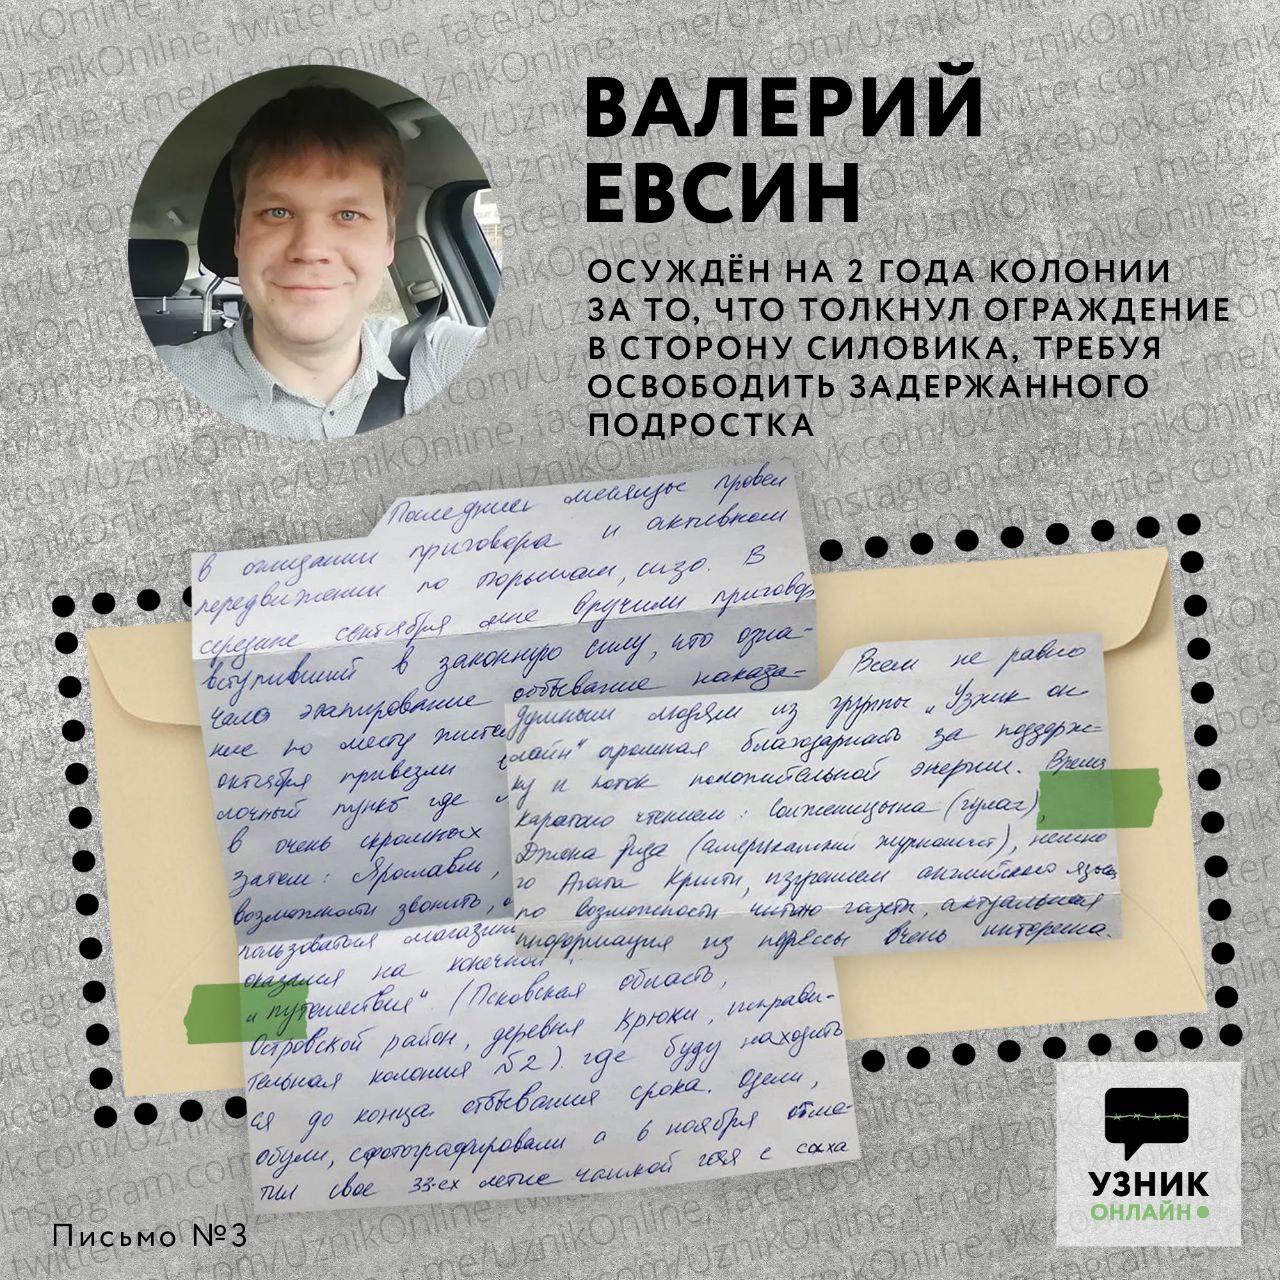 ВАЛЕРИЙ
ЕВСИН
ОСУЖДЁН НА 2 ГОДА КОЛОНИИ
ЗА ТО, ЧТО ТОЛКНУЛ ОГРАЖДЕНИЕ
В СТОРОНУ СИЛОВИКА, ТРЕБУЯ
ОСВОБОДИТЬ ЗАДЕРЖАННОГО
ПОДРОСТКА
Последние месяцы провел
в ожидании приговора и активном
передвижении по тюрьмам, сизо. В
середине сентября мне вручили приговор
вступивший в законную силу, что озна-
чало этапирование отбывание наказа-
ние по месту
октября привезли
пункт где
в очень скромных
затем: Ярославль,
возможности звонить,
пользоваться
оказался на конечной
"путешествия" (Псковская область,
Островский район, деревня Крюки, исправи-
тельная колония №2). где буду находить
ся до конца отбывания срока. Одели,
обули, сфотографировали а 6 ноября отме-
тил свое 33-ех летие чашкой чая с
Всем не равно
душным людям из группы "Узник он-
лайн" огромная благодарность за поддерж-
ку и поток положительной энергии. Время
коротаю чтением: солженицына (гулаг),
Джона Рида (американский журналист), немно
го Агата Кристи, изучением английского языка
по возможности читаю газеты, актуальная
информация из прессы очень интересна.
Письмо №3
УЗНИК
ОНЛАЙН
UznikOnline, twitter.com/UznikOnline, facebook.com/UznikOnline, t.me/UznikOnline, vk.com/UznikOnline, Instagram.com/UznikOnline